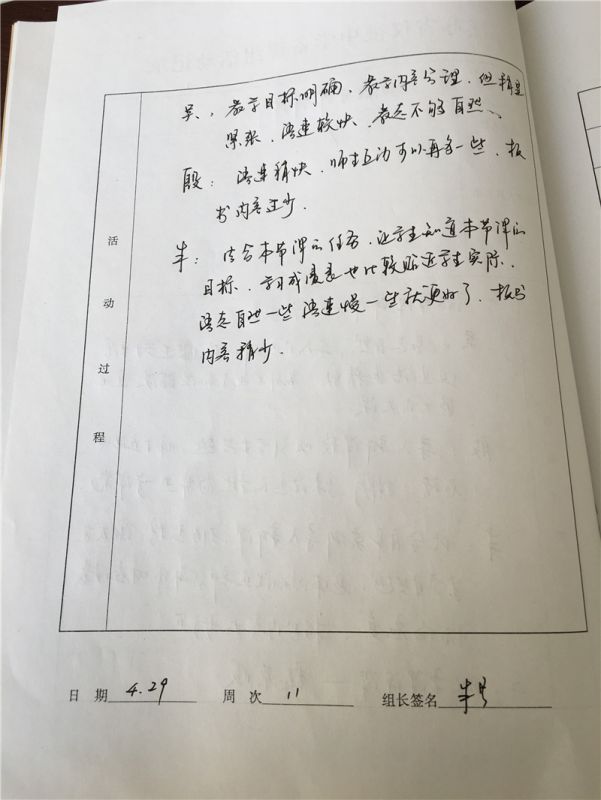 吴：教学目标明确、教学内容合理，但稍显
紧张，语速较快，教态不够自然、
殷：语速稍快，师生互动可以再多一些，板
书内容过少．
朱：结合本节课的任务，让学生知道本节课的
目标、学习成语表也比较贴近学生实际、
语态自然一些语速慢一些就更好了、板书
内容稍少．
活动过程
日 期 4.29 周 次 11 组长签名